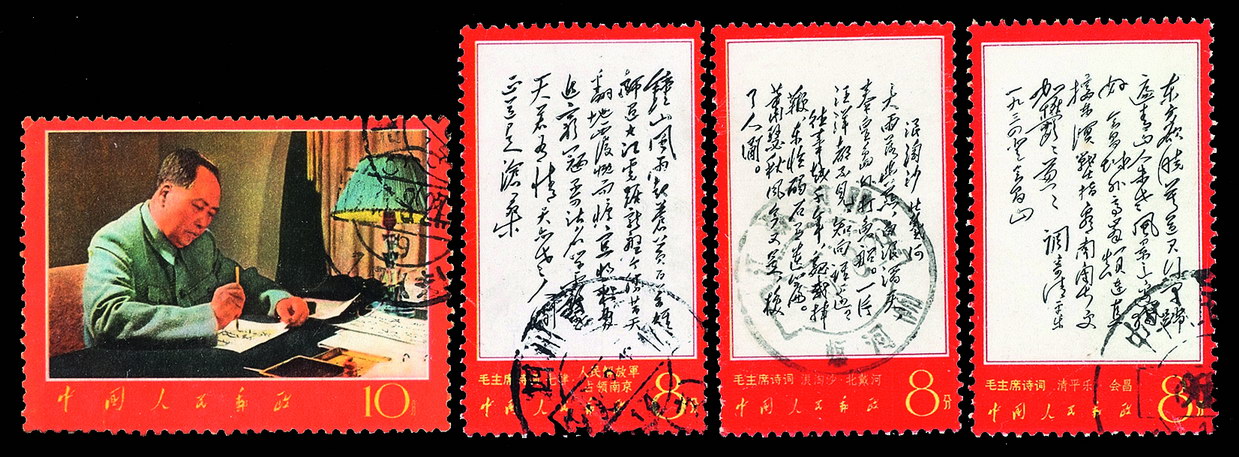 中國人民郵政 10分
鐘山風雨起蒼黃百萬雄
師過大江虎踞龍盤今勝昔天
翻地覆慨而慷宜將剩勇
追窮寇不可沽名學霸王
天若有情天亦老人間
正道是滄桑
毛主席诗词 七律 人民解放軍
占領南京
中國人民郵政 8分
浪淘沙 北戴河
大雨落幽燕白浪滔天
秦皇島外打魚船。一片
汪洋都不見知向誰邊
往事越千年魏武揮
鞭東臨碣石有遺篇。
蕭瑟秋風今又是換
了人間。
毛主席诗词 浪淘沙 北戴河
中國人民郵政 8分
东方欲晓莫道君行早踏
遍青山人未老风景这边独
好 会昌城外高峰颠连直
接东溟战士指看南粤更
加郁郁葱葱 调寄清平乐
一九三四年会昌山
毛主席诗词 清平乐 会昌
中國人民郵政 8分